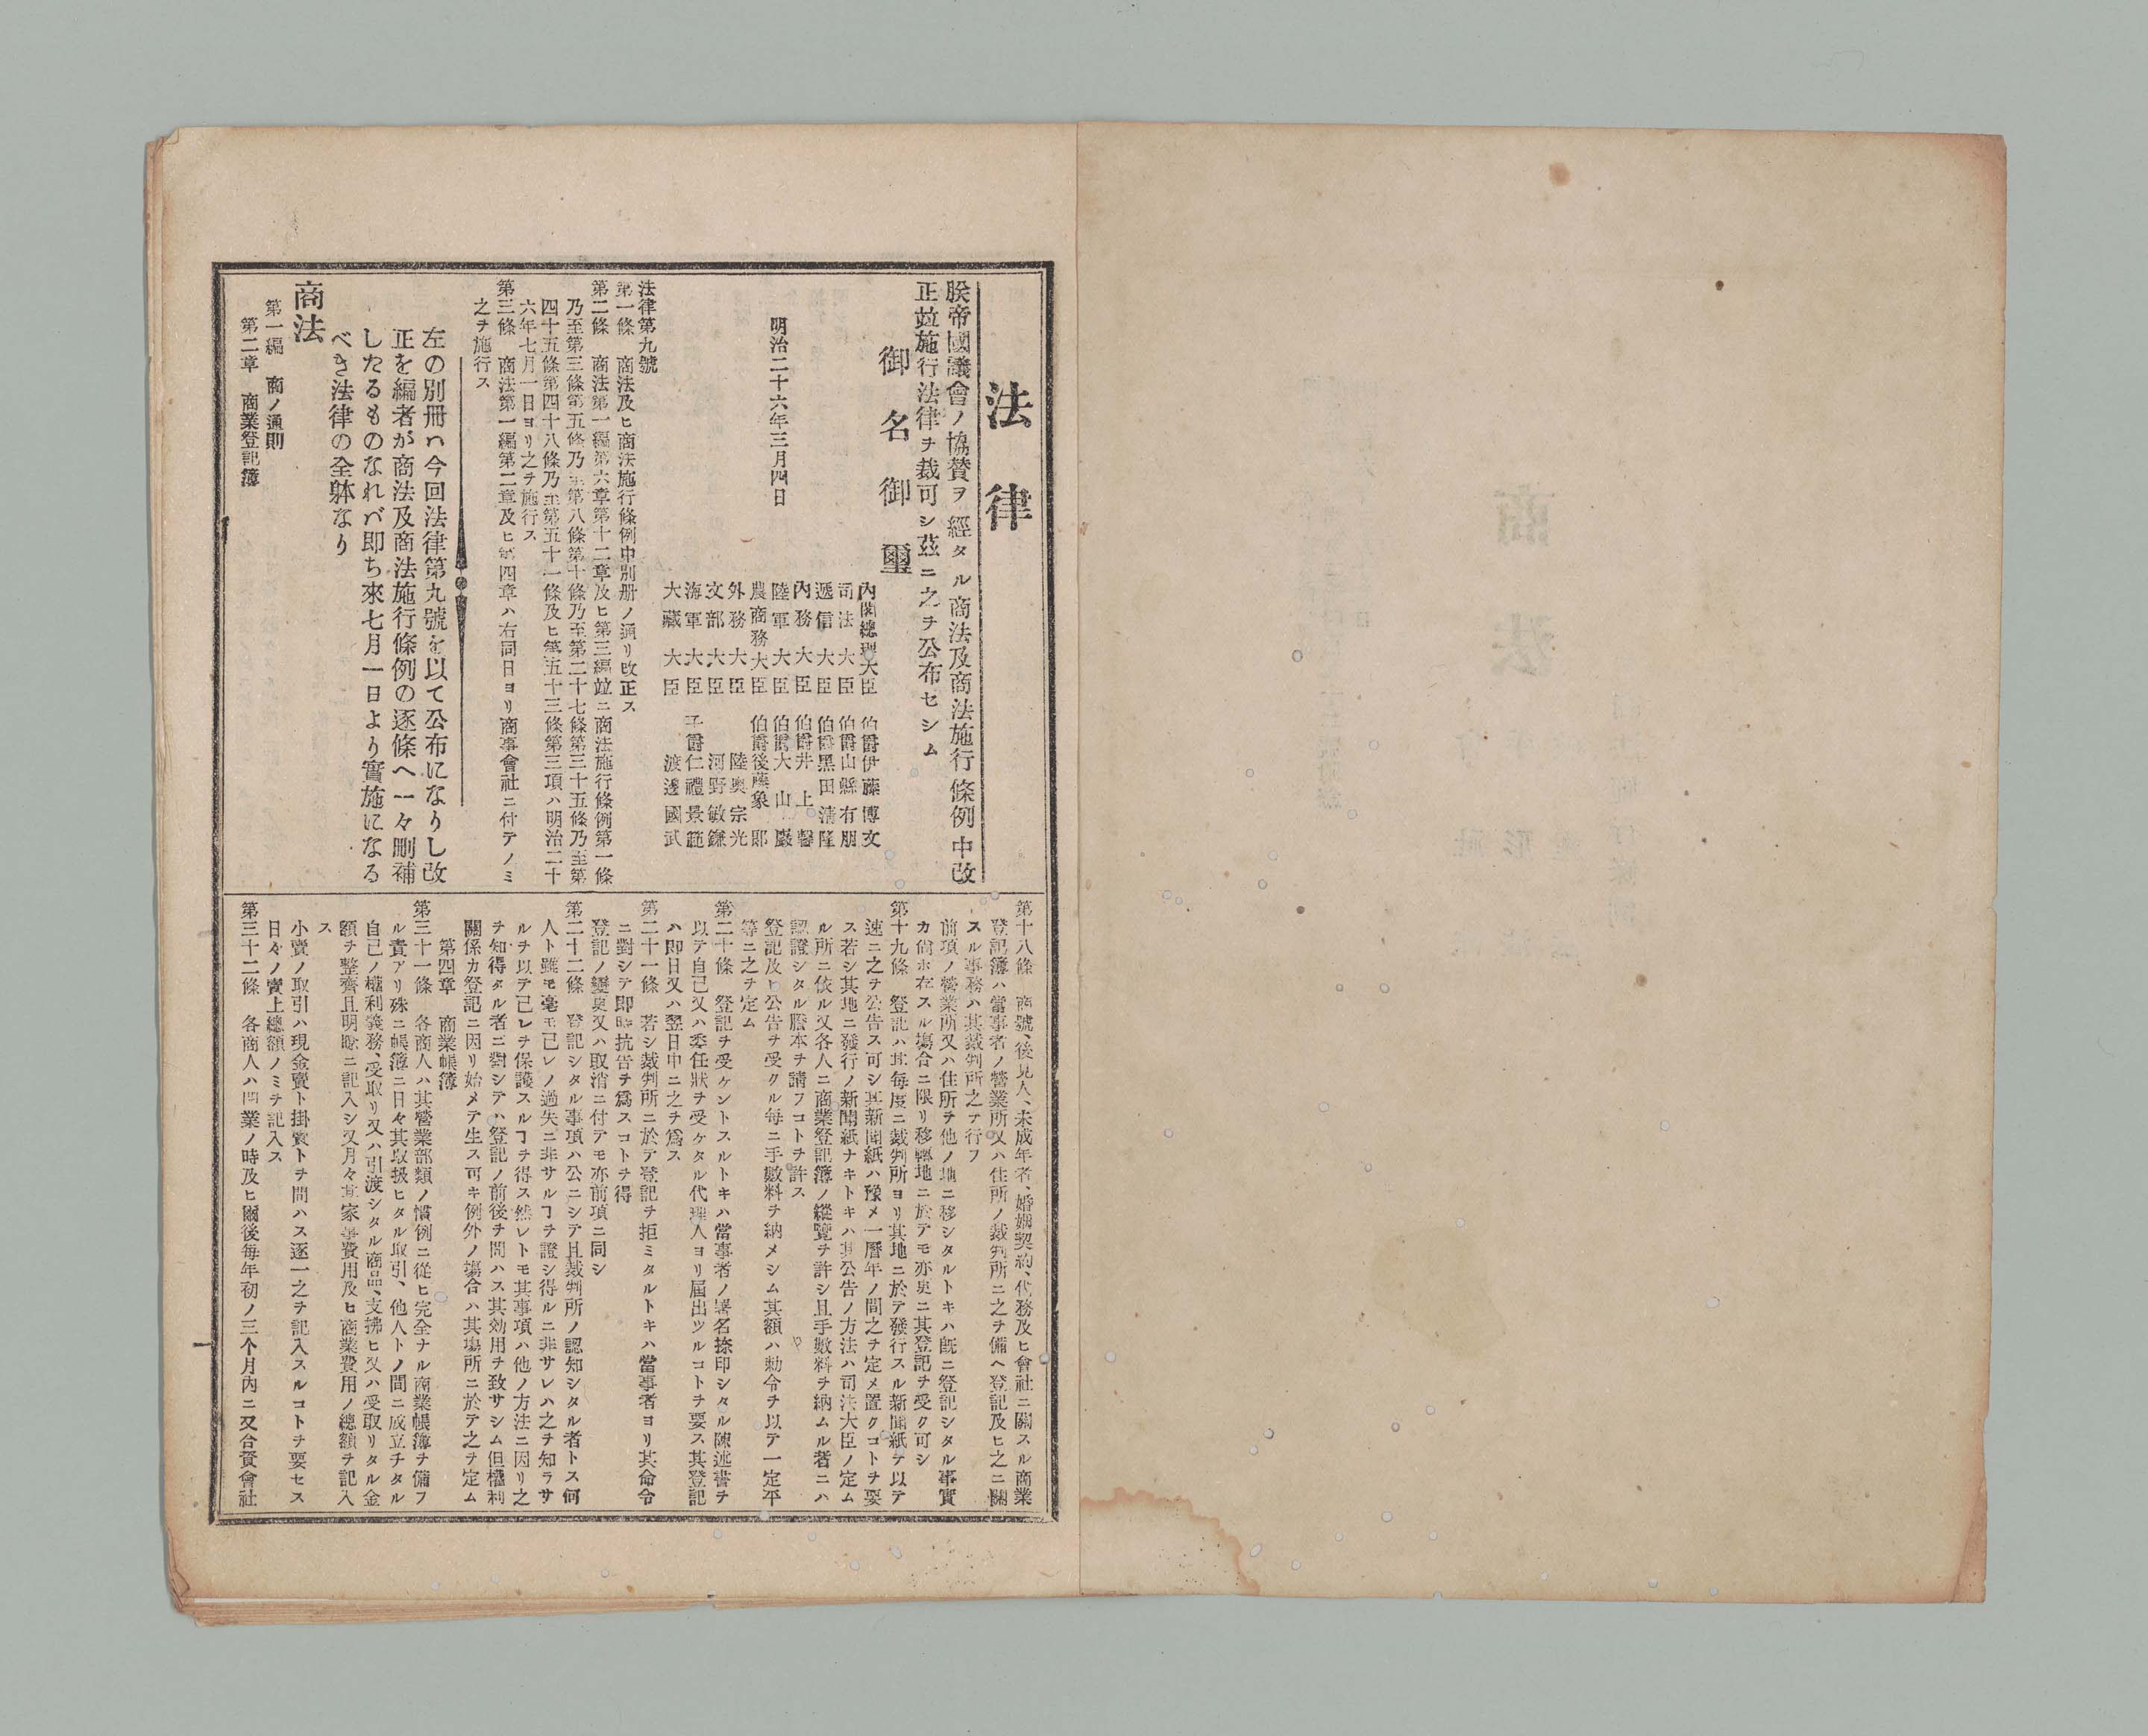 法律
朕帝國議會ノ協賛ヲ經タル商法及商法施行條例中改
正竝施行法律ヲ裁可シ茲ニ之ヲ公布セシム
御名御璽
明治二十六年三月四日
內閣總理大臣 伯爵伊藤博文
司法大臣 伯爵山縣有朋
遞信大臣 伯爵黑田淸隆
內務大臣 伯爵井上馨
陸軍大臣 伯爵大山巖
農商務大臣 伯爵後藤象二郎
外務大臣 陸奧宗光
文部大臣 河野敏鎌
海軍大臣 子爵仁禮景範
大藏大臣 渡邊國武
法律第九號
第一條 商法及ヒ商法施行條例中別册ノ通リ改正ス
第二條 商法第一編第六章第十二章及ヒ第三編竝ニ商法施行條例第一條
乃至第三條第五條乃至第八條第十條乃至第二十七條第三十五條乃至第
四十五條第四十八條乃至第五十一條及ヒ第五十三條第三項ハ明治二十
六年七月一日ヨリ之ヲ施行ス
第三條 商法第一編第二章及ヒ第四章ハ右同日ヨリ商事會社ニ付テノミ
之ヲ施行ス
左の別冊ハ今回法律第九號を以て公布になりし改
正を編者が商法及商法施行條例の逐條へ一々刪補
したるものなれバ即ち來七月一日より實施になる
べき法律の全躰なり
商法
第一編 商ノ通則
第二章 商業登記簿
第十八條 商號、後見人、未成年者、婚姻契約、代務及ヒ會社ニ關スル商業
登記簿ハ當事者ノ營業所又ハ住所ノ裁判所ニ之ヲ備ヘ登記及ヒ之ニ關
スル事務ハ其裁判所之ヲ行フ
前項ノ營業所又ハ住所ヲ他ノ地ニ移シタルトキハ旣ニ登記シタル事實
カ尙ホ存スル塲合ニ限リ移轉地ニ於テモ亦更ニ其登記ヲ受ク可シ
第十九條 登記ハ其每度ニ裁判所ヨリ其地ニ於テ發行スル新聞紙ヲ以テ
速ニ之ヲ公告ス可シ其新聞紙ハ豫メ一曆年ノ間之ヲ定メ置クコトヲ要
ス若シ其地ニ發行ノ新聞紙ナキトキハ其公告ノ方法ハ司法大臣ノ定ム
ル所ニ依ル又各人ニ商業登記簿ノ縱覽ヲ許シ且手數料ヲ納ムル者ニハ
認證シタル謄本ヲ請フコトヲ許ス
登記及ヒ公告ヲ受クル每ニ手數料ヲ納メシム其額ハ勅令ヲ以テ一定平
等ニ之ヲ定ム
第二十條 登記ヲ受ケントスルトキハ當事者ノ署名捺印シタル陳述書ヲ
以テ自己又ハ委任狀ヲ受ケタル代理人ヨリ屆出ツルコトヲ要ス其登記
ハ即日又ハ翌日中ニ之ヲ爲ス
第二十一條 若シ裁判所ニ於テ登記ヲ拒ミタルトキハ當事者ヨリ其命令
ニ對シテ即時抗告ヲ爲スコトヲ得
登記ノ變更又ハ取消ニ付テモ亦前項ニ同シ
第二十二條 登記シタル事項ハ公ニシテ且裁判所ノ認知シタル者トス何
人ト雖モ毫モ己レノ過失ニ非サルヿヲ證シ得ルニ非サレハ之ヲ知ラサ
ルヲ以テ己レヲ保護スルヿヲ得ス然レトモ其事項ハ他ノ方法ニ因リ之
ヲ知得タル者ニ對シテハ登記ノ前後ヲ問ハス其効用ヲ致サシム但權利
關係カ登記ニ因リ始メテ生ス可キ例外ノ塲合ハ其塲所ニ於テ之ヲ定ム
第四章 商業帳簿
第三十一條 各商人ハ其營業部類ノ慣例ニ從ヒ完全ナル商業帳簿ヲ備フ
ル責アリ殊ニ帳簿ニ日々其取扱ヒタル取引、他人トノ間ニ成立チタル
自己ノ權利義務、受取リ又ハ引渡シタル商品、支拂ヒ又ハ受取リタル金
額ヲ整齊且明瞭ニ記入シ又月々其家事費用及ヒ商業費用ノ總額ヲ記入
ス
小賣ノ取引ハ現金賣ト掛賣トヲ問ハス逐一之ヲ記入スルコトヲ要セス
日々ノ賣上總額ノミヲ記入ス
第三十二條 各商人ハ開業ノ時及ヒ爾後每年初ノ三个月內ニ又合資會社